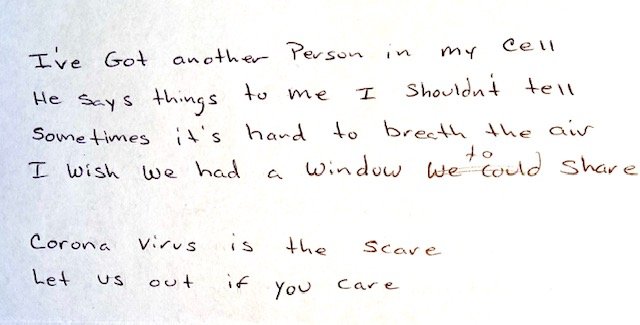 I've Got another Person in my Cell
He Says things to me I Shouldn't tell
Sometimes it's hard to breath the air
I Wish We had a Window to Share
Corona Virus is the Scare
Let us out if you Care